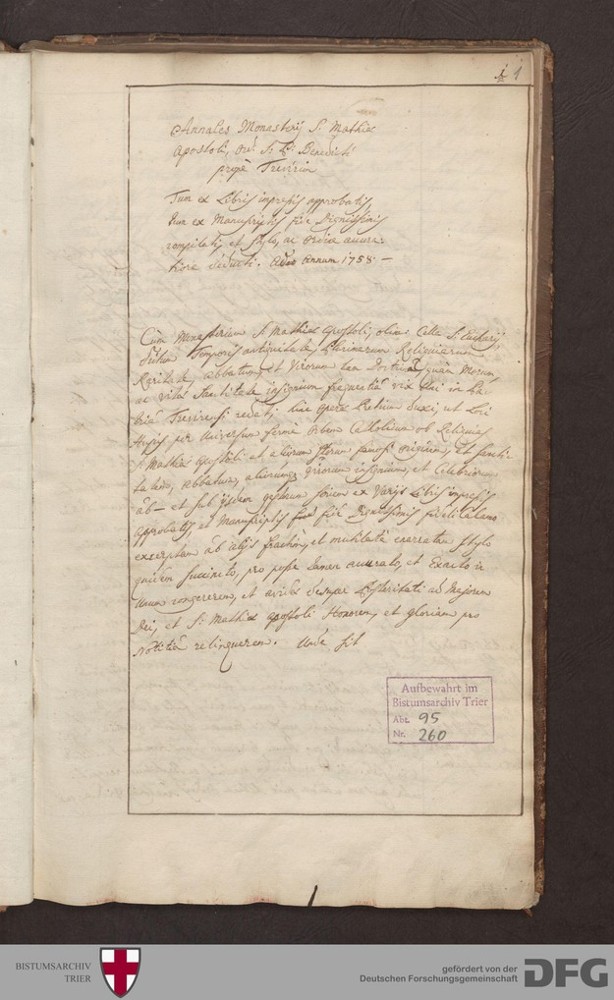 1
Annales Monasterij S. Mathiæ
Apostoli, Ord. S. P. Benedicti
prope Treverim
Tum ex Libris impressis approbatis,
tum ex Manuscriptis fide Dignissimis
compilati, et stylo, ac ordine accura-
tiore deducti. Annum 1758. —
Cum Monasterium S. Mathiæ Apostoli, olim Cella S. Eucharij,
temporis antiquitate, plurimarum Reliquiarum
Raritate, Abbatum, et Virorum tea Doctrina, quam Morum
ac vitæ Sanctitate insignium frequentia vix in Pa-
tria Trevirensi cedat, hinc opere pretium duxi, ut Loci
Hujus per Universum fermè Orbem Catholicum ob Reliquias
S. Mathiæ Apostoli et aliorum famosi originem, et sancti-
tatem, Abbatum, aliorumque virorum insignium, et Celebrium
ab et sub ijsdem gestorum seriem ex Varijs Libris impressis
approbatis, et Manuscriptis fide Dignissimis fideliter
excerptam ab alijs fractim, et mutilatè stylo
quidem succincto, pro posse tamen accurato, et Exacto in
Unum congererem, et Posteritati ad Majorem
Dei, et S. Mathiæ Apostoli Honorem, et gloriam pro
Notitia relinquerem. Unde sit
Aufbewahrt im
Bistumsarchiv Trier
Abt. 95
Nr. 260
BISTUMSARCHIV
TRIER
gefördert von der
Deutschen Forschungsgemeinschaft
DFG